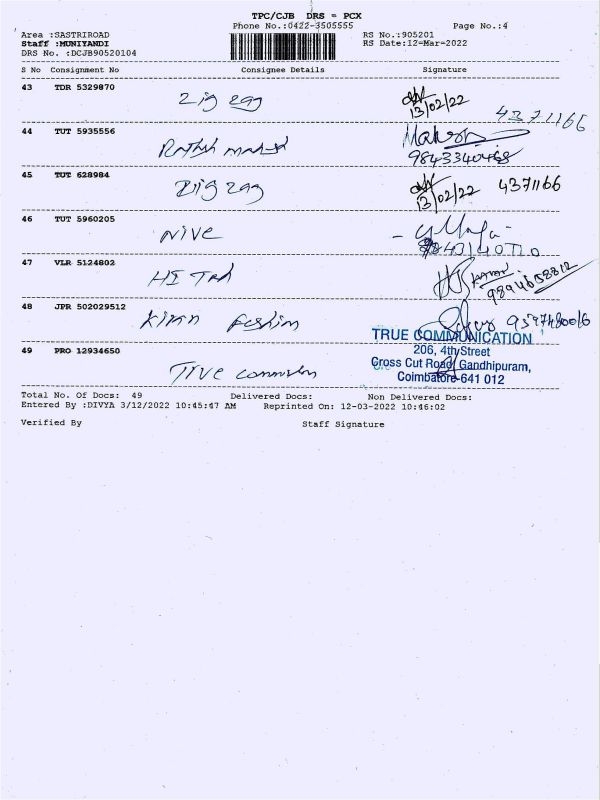 TPC/CJB DRS = PCX
Phone No.:0422-3505555 Page No.:4
Area :SASTRIROAD RS No.:905201
Staff :MUNIYANDI RS Date:12-Mar-2022
DRS No. :DCJB90520104
S No Consignment No Consignee Details Signature
43 TDR 5329870 Zig zag 13/02/22 4371166
44 TUT 5935556
45 TUT 628984 Zig zag 13/02/22 4371166
46 TUT 5960205 NIVE
47 VLR 5124802 HI Tad 9894652812
48 JPR 502029512 Kiran
TRUE COMMUNICATION
206, 4th Street
Cross Cut Road, Gandhipuram,
Coimbatore-641 012
49 PRO 12934650 True
Total No. Of Docs: 49 Delivered Docs: Non Delivered Docs:
Entered By :DIVYA 3/12/2022 10:45:47 AM Reprinted On: 12-03-2022 10:46:02
Verified By Staff Signature